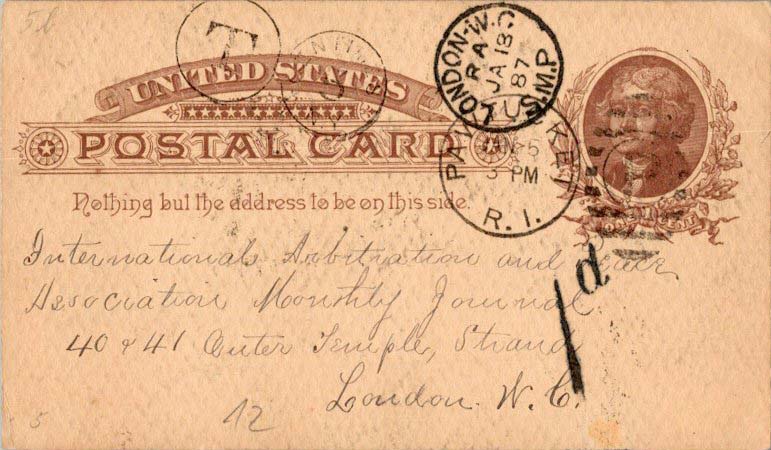 5b
T
UNITED STATES
POSTAL CARD
Nothing but the address to be on this side.
LONDON·W.C
RA
JA 18
87
U.S.M.P
PAW KET
5
3 PM
R.I.
International Arbitration and
Association Monthly Journal
40 & 41 Outer Temple, Strand
London. W. C.
1d
12
5